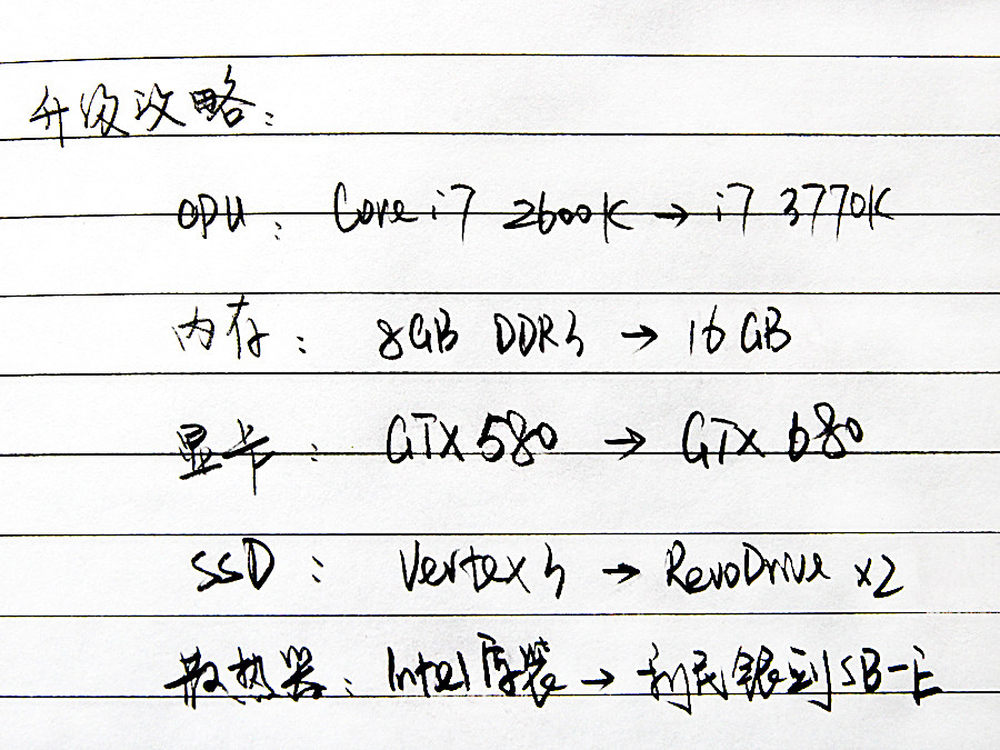 升级攻略：
CPU： Core i7 2600K → i7 3770K
内存： 8GB DDR3 → 16GB
显卡： GTX 580 → GTX 680
SSD： Vertex 3 → RevoDrive x2
散热器：Intel原装 → 利民银剑SB-E